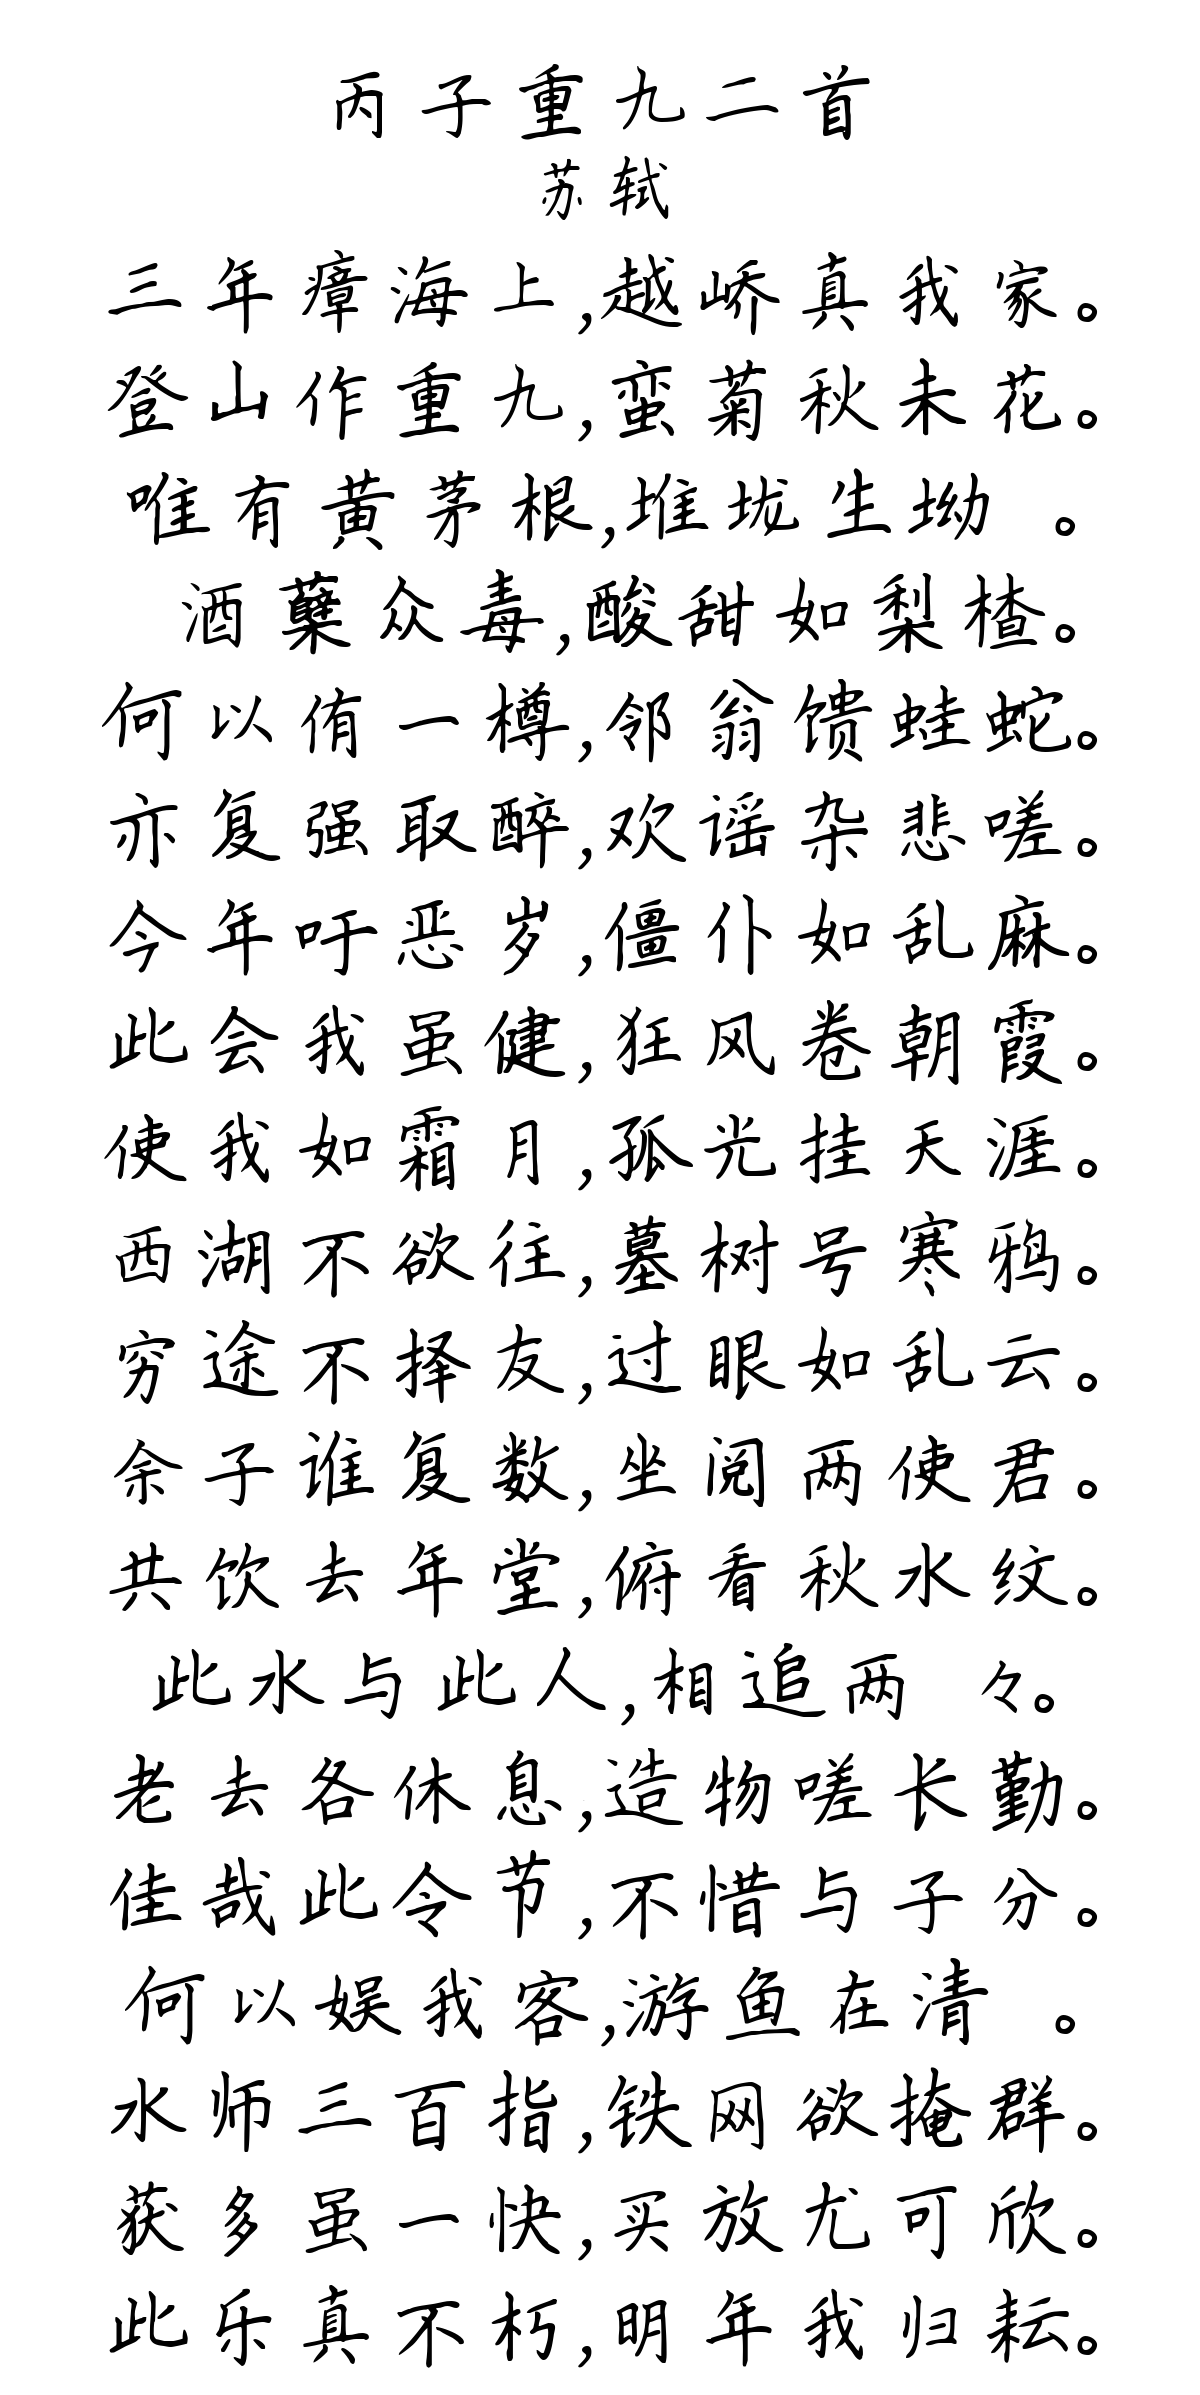 丙子重九二首
苏轼
三年瘴海上,越峤真我家。
登山作重九,蛮菊秋未花。
唯有黄茅根,堆垅生坳 。
 酒蘖众毒,酸甜如梨楂。
何以侑一樽,邻翁馈蛙蛇。
亦复强取醉,欢谣杂悲嗟。
今年吁恶岁,僵仆如乱麻。
此会我虽健,狂风卷朝霞。
使我如霜月,孤光挂天涯。
西湖不欲往,墓树号寒鸦。
穷途不择友,过眼如乱云。
余子谁复数,坐阅两使君。
共饮去年堂,俯看秋水纹。
此水与此人,相追两 々。
老去各休息,造物嗟长勤。
佳哉此令节,不惜与子分。
何以娱我客,游鱼在清 。
水师三百指,铁网欲掩群。
获多虽一快,买放尤可欣。
此乐真不朽,明年我归耘。